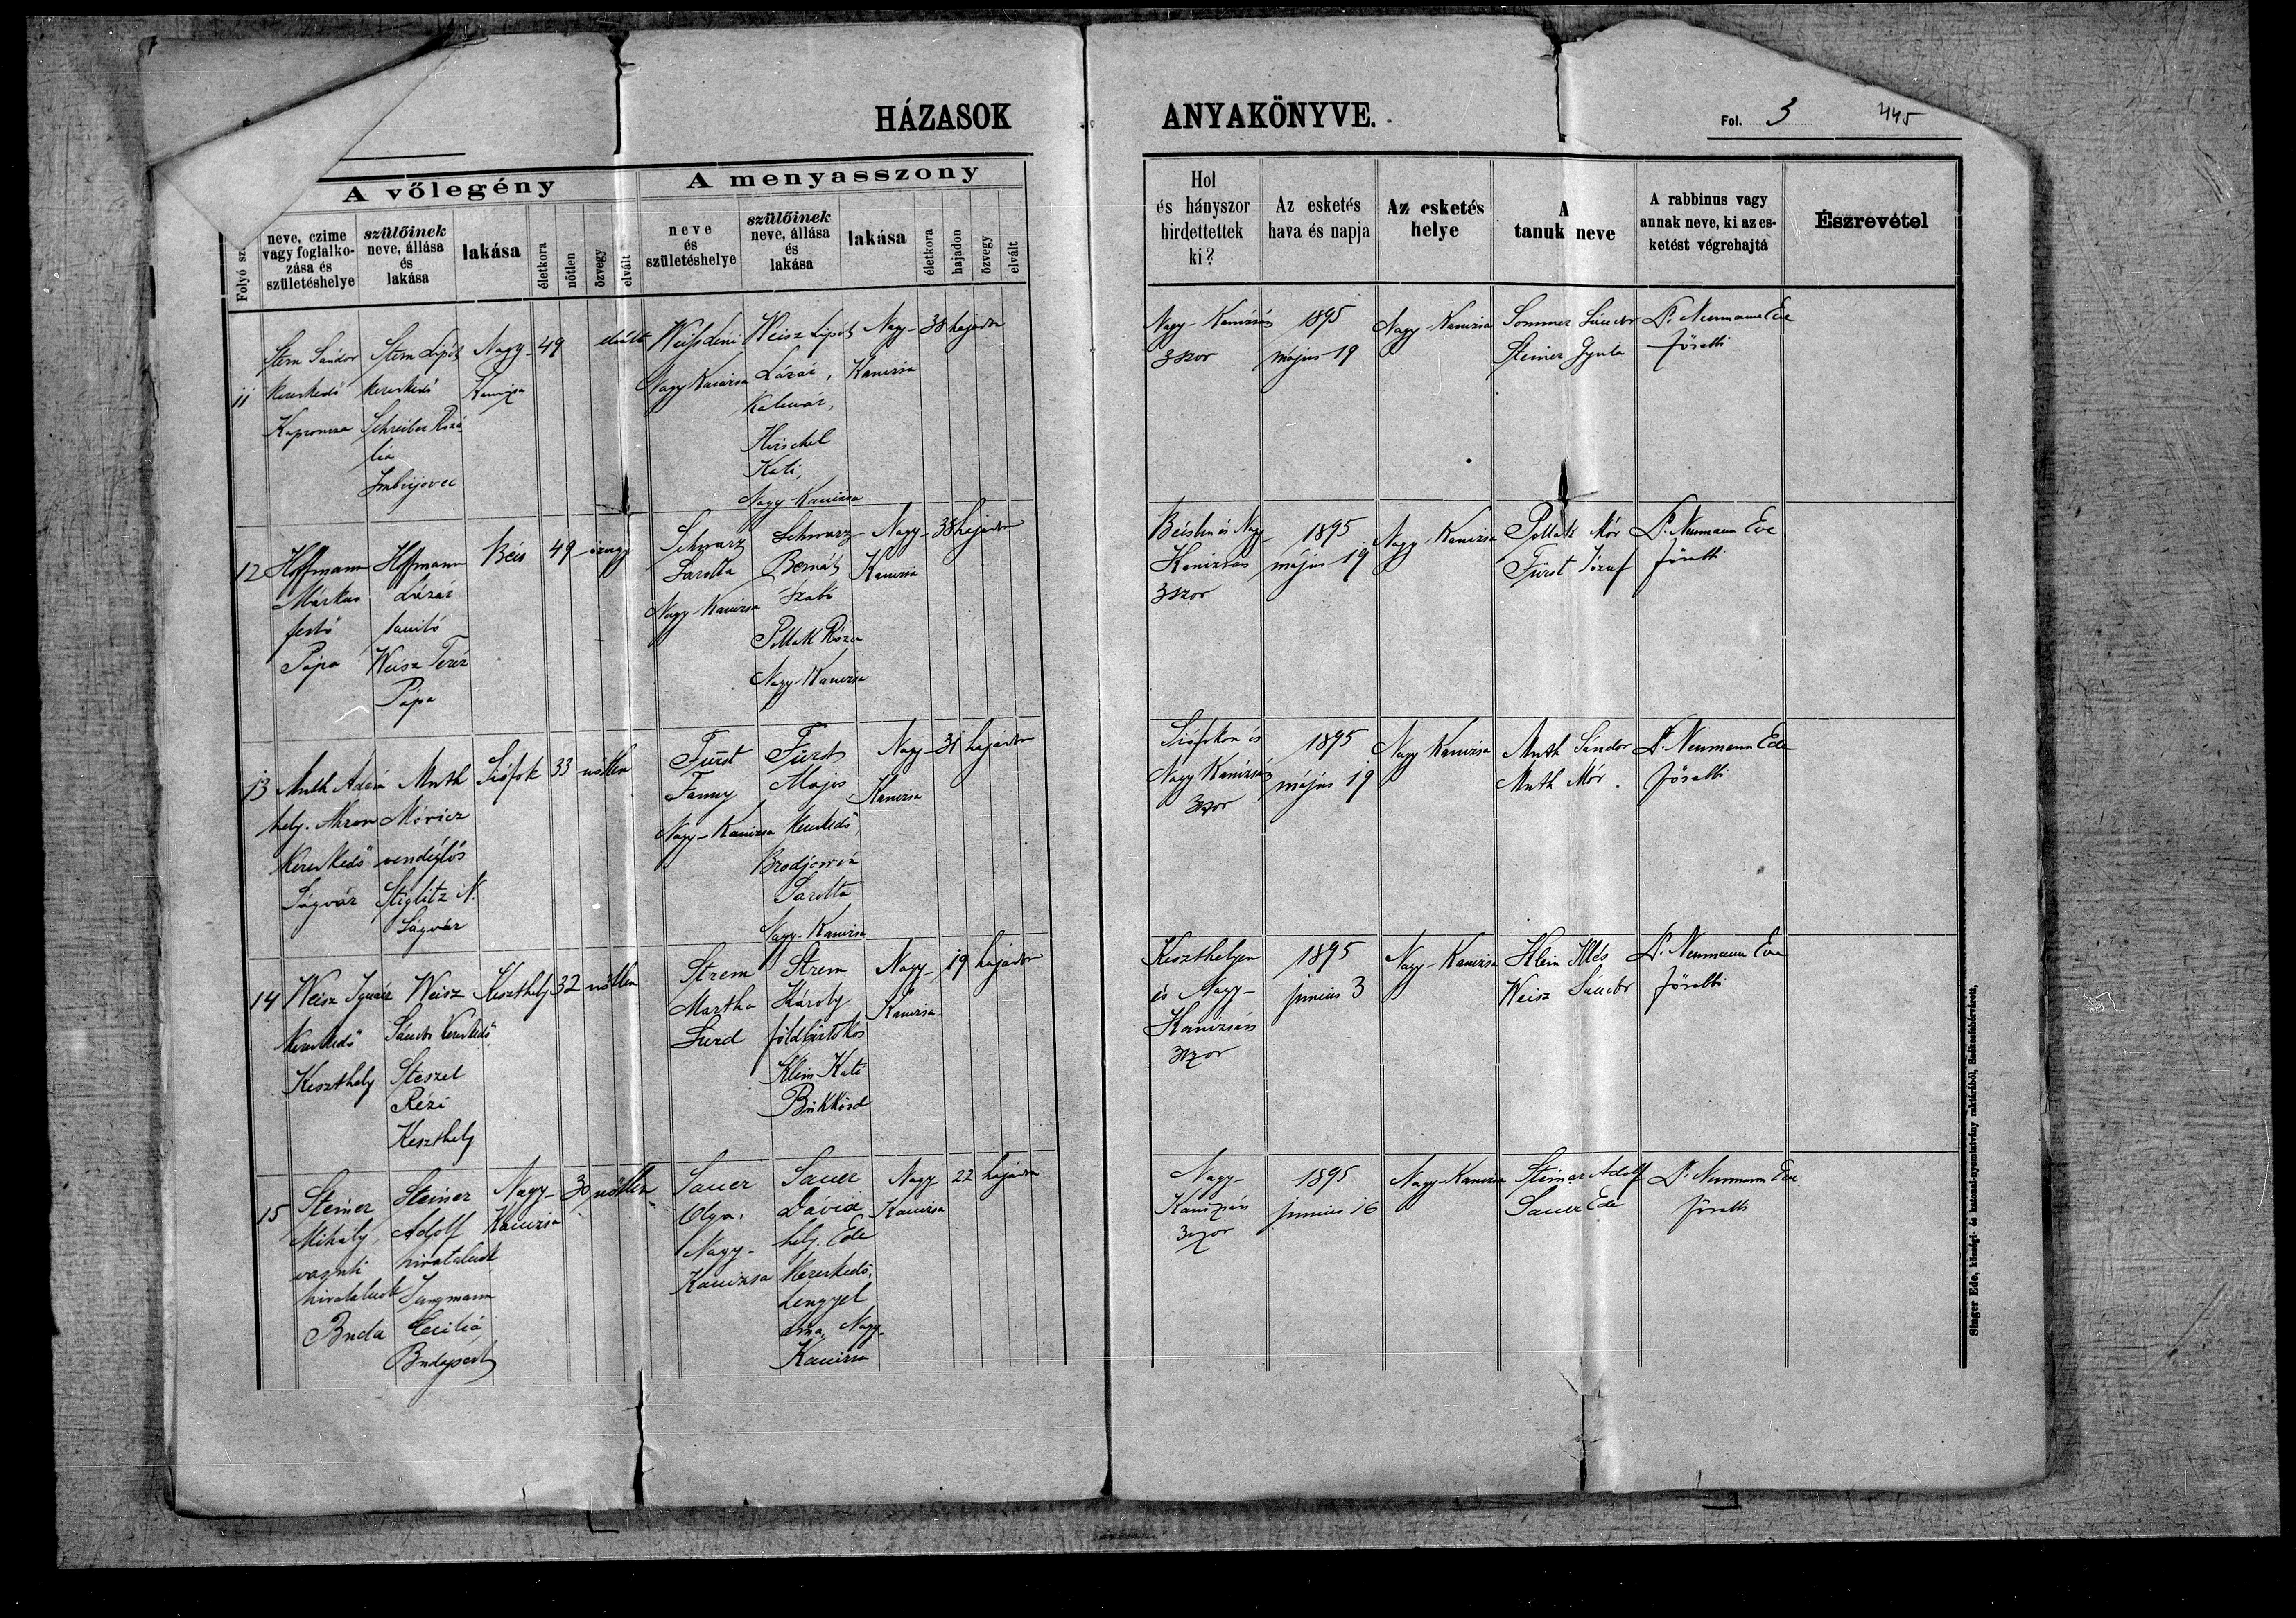 HÁZASOK ANYAKÖNYVE.
Fol. 3 445
A vőlegény
A menyasszony
Folyó sz
neve, czime
vagy foglalko-
zása és
születéshelye
szülőinek
neve, állása
és
lakása
lakása
életkora
nőtlen
özvegy
elvált
neve
és
születéshelye
szülőinek
neve, állása
és
lakása
lakása
életkora
hajadon
özvegy
elvált
Hol
és hányszor
hirdettettek
ki?
Az esketés
hava és napja
Az esketés
helye
A
tanuk neve
A rabbinus vagy
annak neve, ki az es-
ketést végrehajtá
Észrevétel
11
Stern Sándor
kereskedő
Kaproncza
Stern Lipót
kereskedő
Schreiber Rozá
lia
Imbrijovec
Nagy-
Kanizsa
49
elvált
Weisz Leni
Nagy Kanizsa
Weisz Lipót
Lázár,
Kati,
Nagy-Kanizsa
Nagy-
Kanizsa
38
hajadon
Nagy-Kanizsán
3szor
1895
május 19
Nagy-Kanizsa
Sommer Sándor
Steiner Gyula
Dr. Neumann Ede
főrabbi
12
Hoffmann
Márkus
festő
Pápa
Hoffmann
Lázár
tanító
Weisz Teréz
Pápa
Bécs
49
özvegy
Schwarz
Sarolta
Nagy-Kanizsa
Schwarz
Bernát
Szabó
Pollak Róza
Nagy-Kanizsa
Nagy-
Kanizsa
38
hajadon
Bécsben és Nagy-
Kanizsán
3szor
1895
május 19
Nagy-Kanizsa
Pollak Mór
Fürst József
Dr. Neumann Ede
főrabbi
13
Muth Adám
helj. Ahron
Kereskedő
Ságvár
Muth
Móricz
vendéglős
Stiglitz N.
Ságvár
Siófok
33
nőtlen
Fürst
Fanny
Nagy-Kanizsa
Fürst
Majos
kereskedő,
Sarolta
Nagy-Kanizsa
Nagy-
Kanizsa
31
hajadon
Siófokon és
Nagy Kanizsán
3szor
1895
május 19
Nagy Kanizsa
Muth Sándor
Muth Mór.
Dr. Neumann Ede
főrabbi
14
Weisz Ignácz
kereskedő
Keszthely
Weisz
Sándor kereskedő
Steszel
Rézi
Keszthely
Keszthely
32
nőtlen
Strem
Martha
Surd
Strem
Károly
földbirtokos
Klein Kati
Bükkösd
Nagy-
Kanizsa
19
hajadon
Keszthelyen
és Nagy-
Kanizsán
3szor
1895
junius 3
Nagy-Kanizsa
Klein Illés
Weisz Sándor
Dr. Neumann Ede
főrabbi
15
Steiner
Mihály
vasuti
hivatalnok
Buda
Steiner
Adolf
hivatalnok
Jungmann
Cecilia
Budapest
Nagy-
Kanizsa
30
nőtlen
Sauer
Olga.
Nagy-
Kanizsa
Sauer
Dávid,
helj. Ede
kereskedő,
Lengyel
Anna, Nagy-
Kanizsa
Nagy
Kanizsa
22
hajadon
Nagy-
Kanizsán
3szor
1895
junius 16
Nagy-Kanizsa
Steiner Adolf
Sauer Ede
Dr. Neumann Ede
főrabbi
Singer Ede, községi- és katonai-nyomtatvány raktárából, Székesfehérvárott.